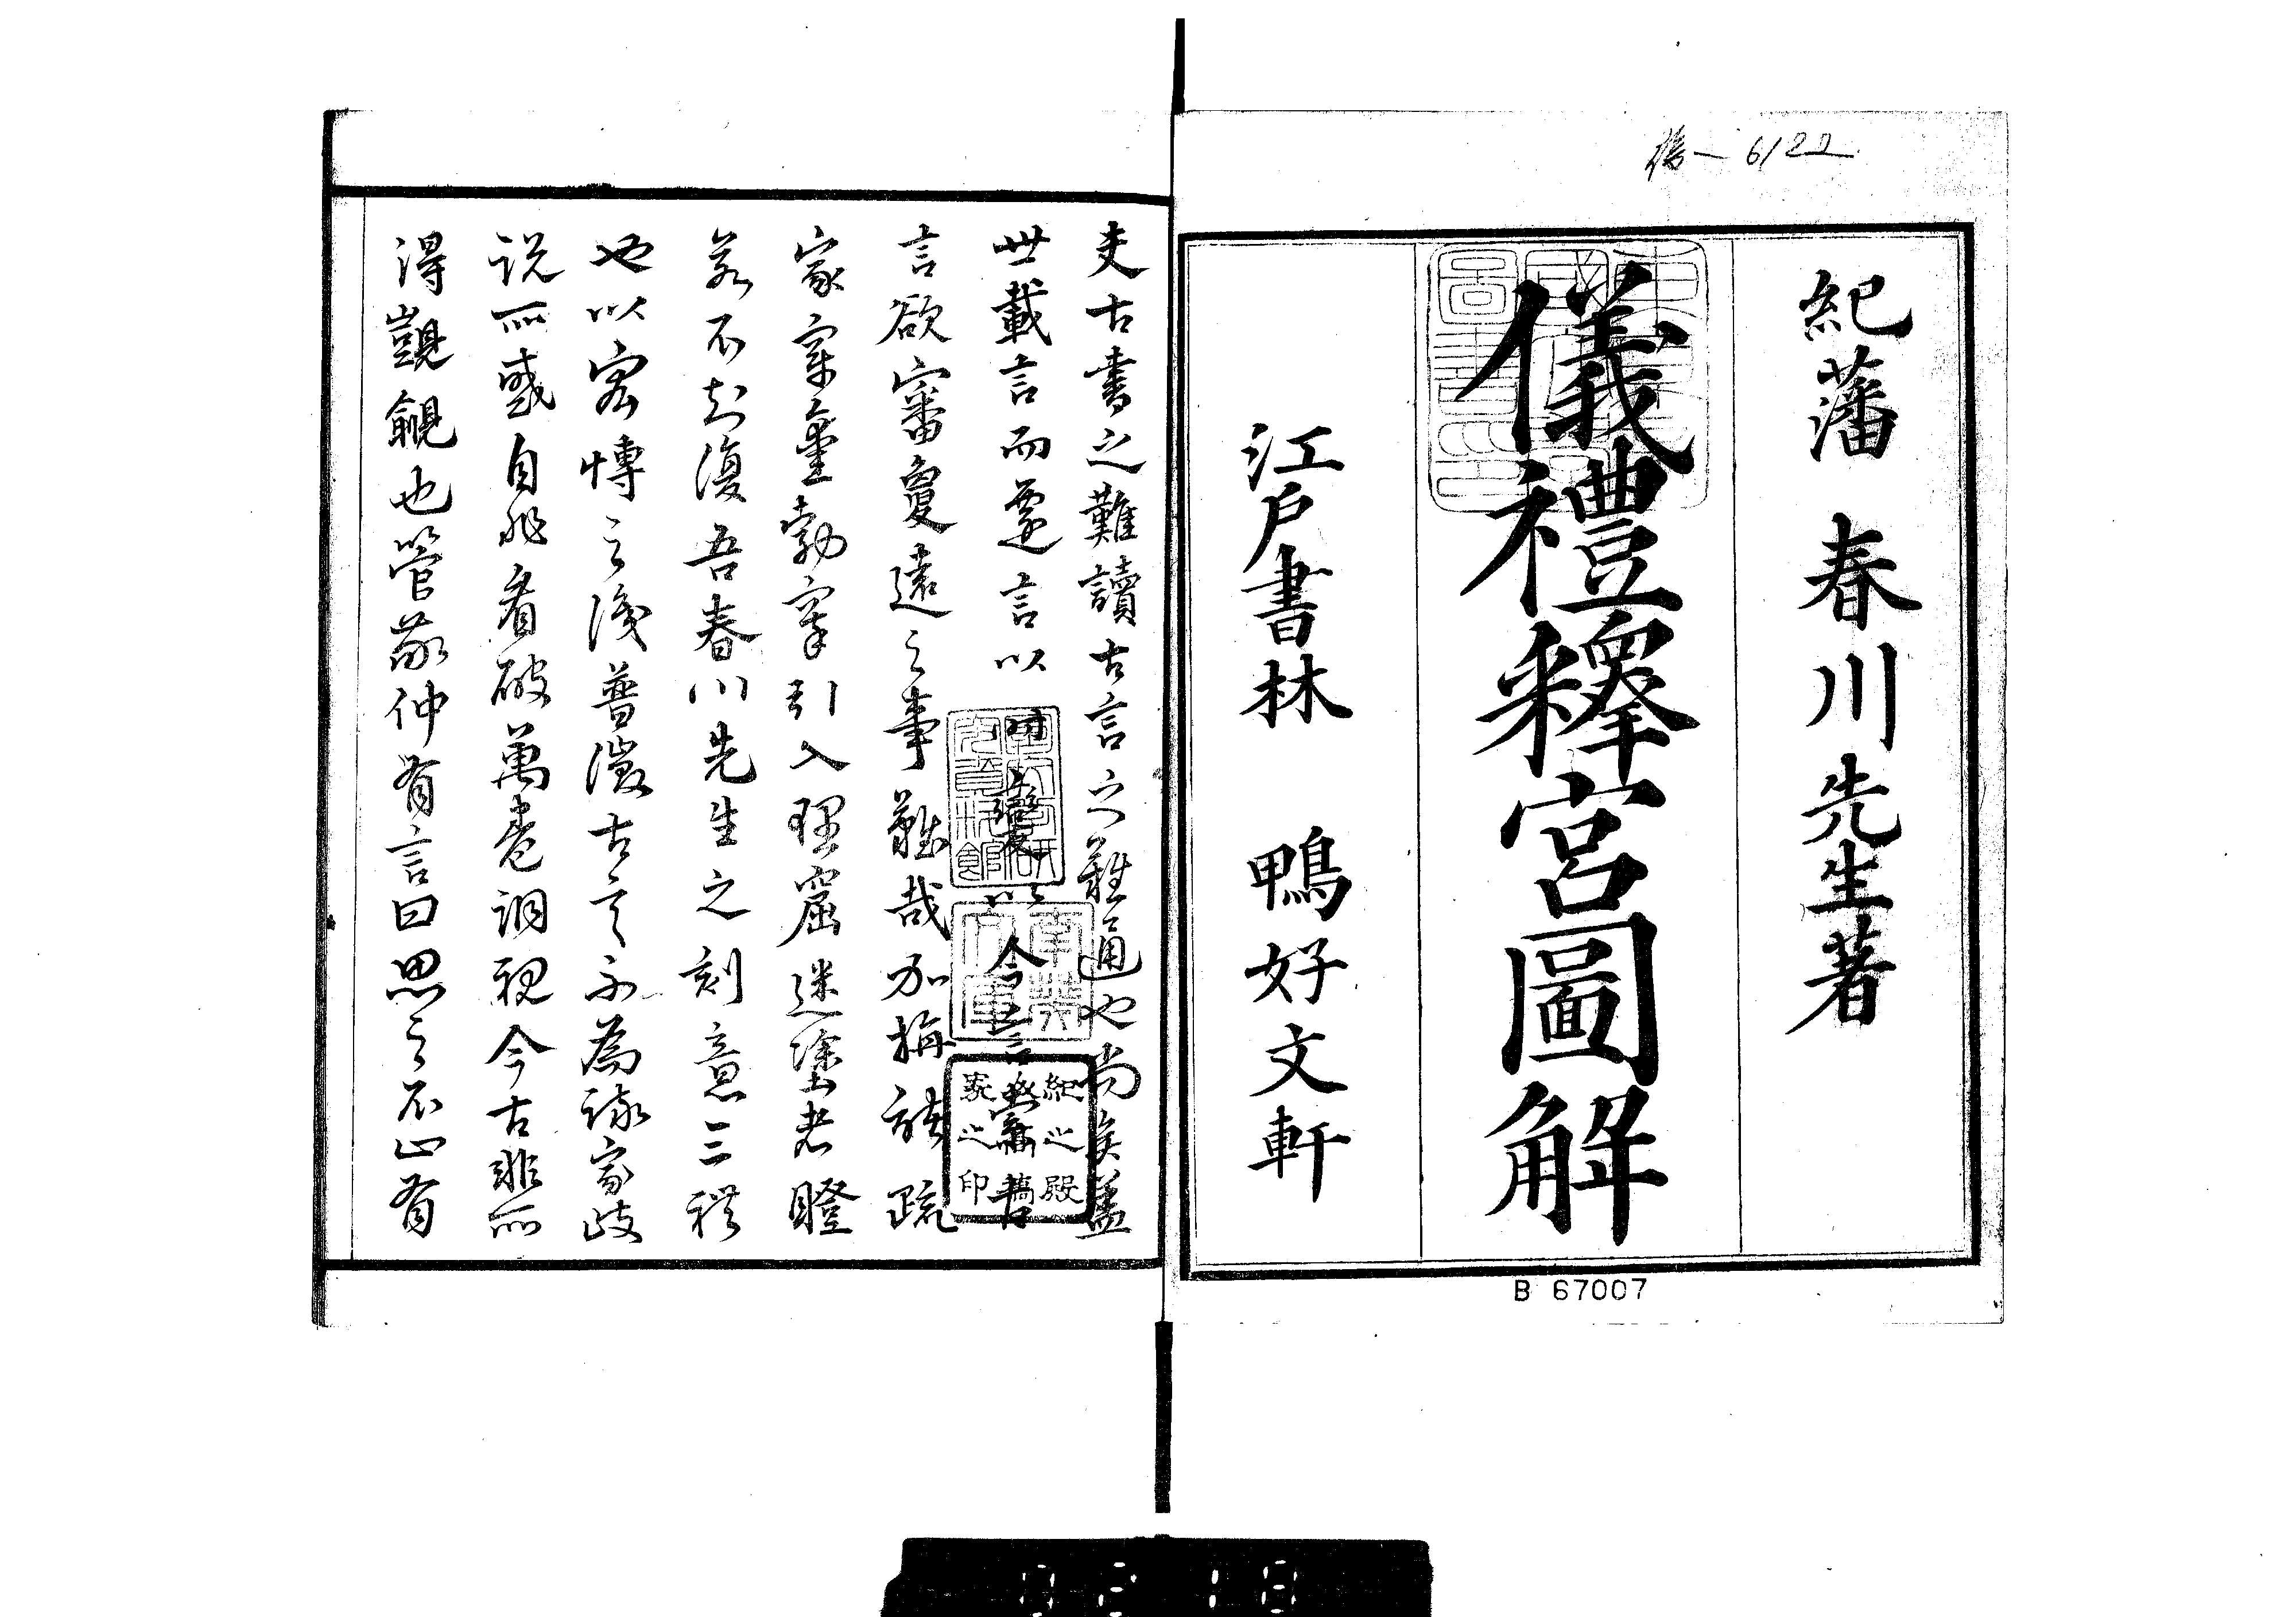 6122
紀藩 春川先生著
儀禮釋宮圖解
江戸書林 鴨好文軒
B 67007
夫古書之難讀古言之難通也尚矣蓋
世載言而遷言以 變以今言
言欲審夐遠之事難哉加旃諸疏
家 引入理窟迷塗者瞠
若不知復吾春川先生之刻意三禮
也以宏博之識普徵古言不為諸家歧
説所惑自非看破萬卷洞視今古非所
得覬覦也管敬仲有言曰思之不止有
紀之殿
家之印